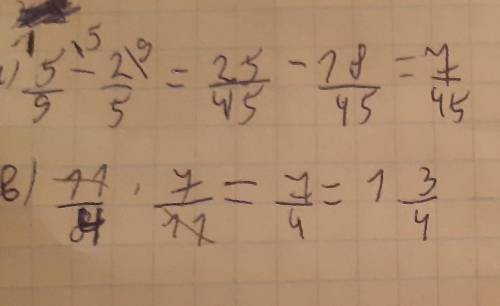 5/9 \5 − 2/5 \9 = 25/45 − 18/45 = 7/45
в) 11/4 · 7/11 = 7/4 = 1 3/4